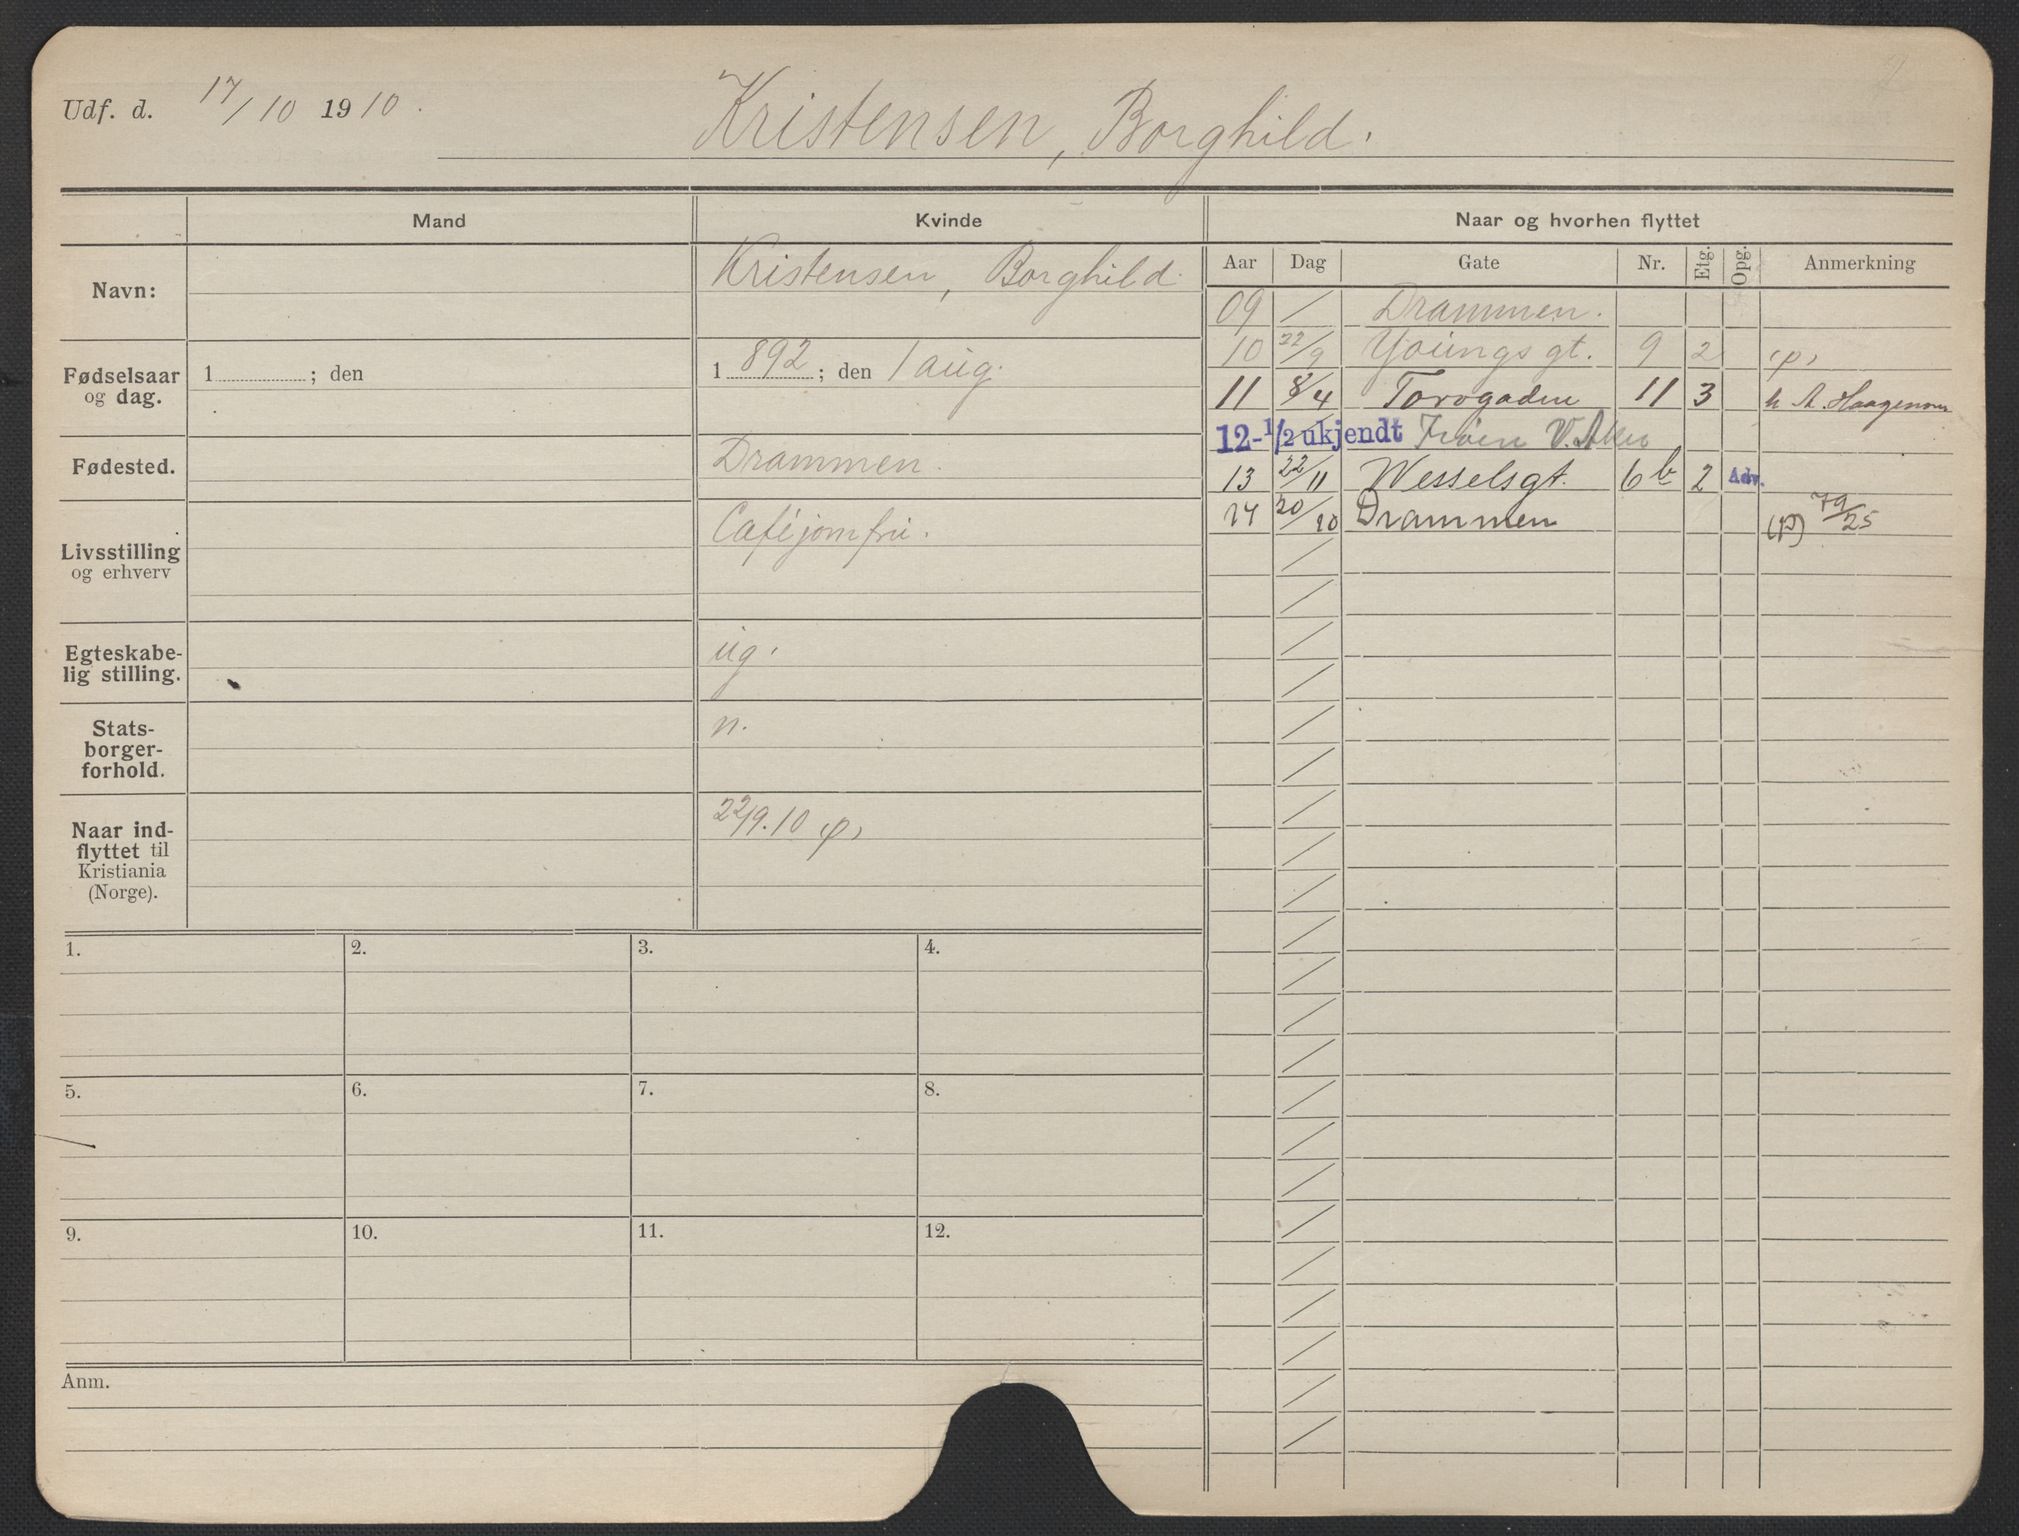 Udf. d. 17/10 1910.
Kristensen, Borghild.
Mand
Kvinde
Naar og hvorhen flyttet
Aar Dag Gate Nr. Etg. Opg. Anmerkning
Navn:
Kristensen, Borghild.
Fødselsaar og dag.
1 ; den
1 892 ; den 1 aug.
Fødested.
Drammen.
Livsstilling og erhverv
Caféjomfru.
Egteskabe-
lig stilling.
ug.
Stats-
borger-
forhold.
n.
Naar ind-
flyttet til
Kristiania
(Norge).
22/9.10 (p)
09 / Drammen.
10 22/9 Youngs gt. 9 2 (p)
11 8/4 Torvgaden 11 3 h A. Haagensen
12-1/2 ukjendt V. Aker
13 22/11 Wesselsgt. 6b 2 Adv.
14 20/10 Drammen (p) 79/25
1. 2. 3. 4.
5. 6. 7. 8.
9. 10. 11. 12.
Anm.